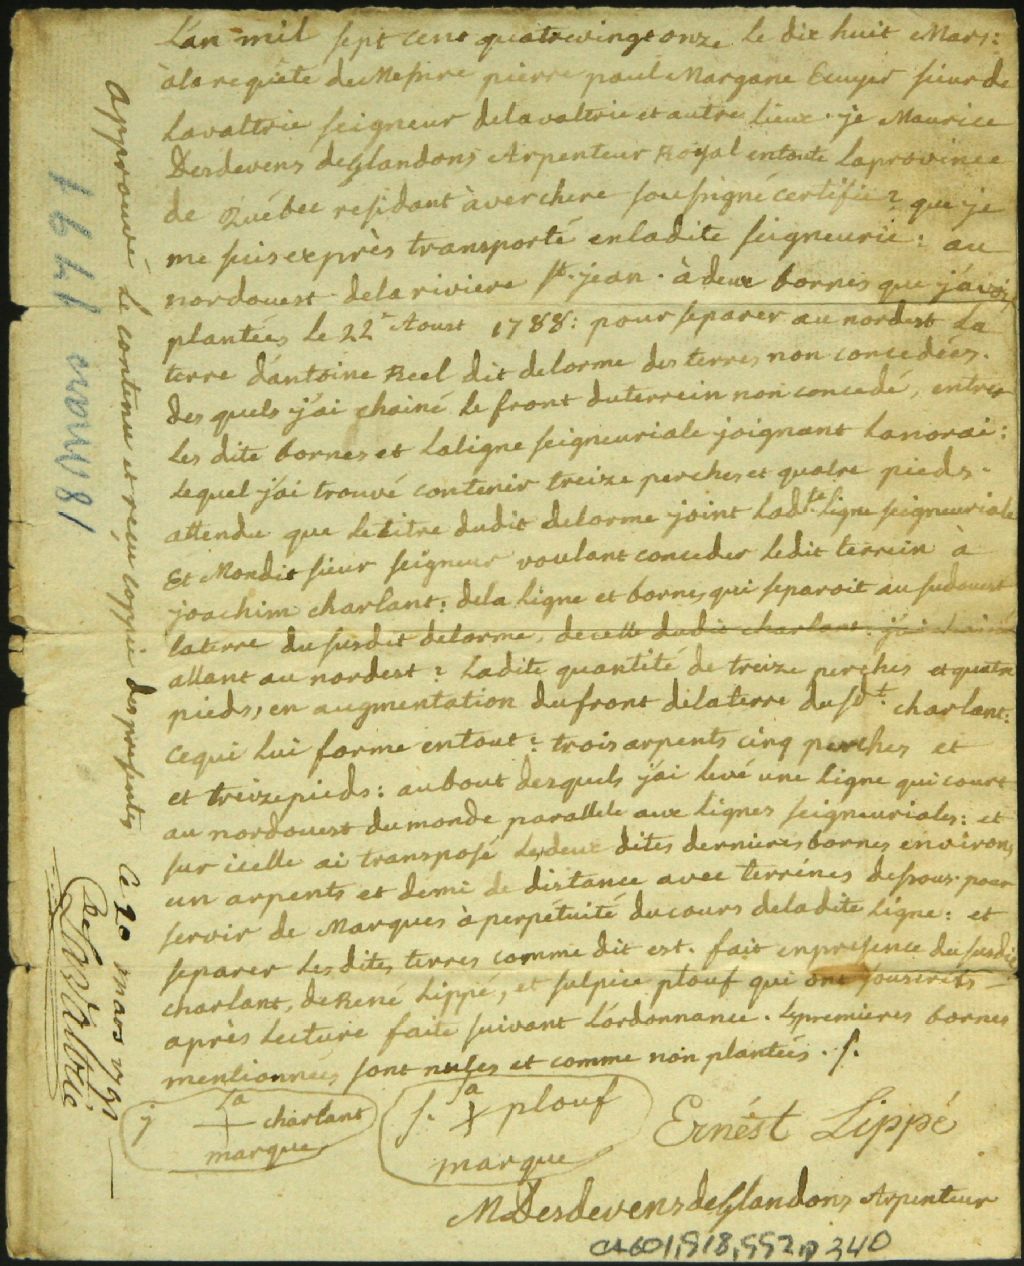 L'an mil sept cent quatrevingt onze le dix huit Mars:
àla requête deMessire pierre paul Margane Ecuyer sieur de
Lavaltrie seigneur delavaltrie et autres Lieux. je Maurice
Desdevens deglandons Arpenteur Royal entoute Laprovince
de Québec residant àverchere soussigné certifie? que je
me suis exprès transporté enladite seigneurie: au
nordouest delariviere St. jean. à deux bornes que j'avois
plantées Le 22e Aoust 1788: pour separer au nordest La
terre d'antoine Reel dit delorme des terres non concedées.
des quels j'ai chainé Le front duterrein non concedé, entres
Les dite bornes et Laligne seigneuriale joignant Lanorai:
Lequel j'ai trouvé contenir treize perches et quatre pieds.
attendu que Letitre dudit delorme joint Ladte. Ligne seigneuriale
Et Mondit sieur seigneur voulant conceder Ledit terrein à
joachim charlant: dela Ligne et bornes qui separoit au sudouest
laterre du susdit delorme, decelle dudit charlant: j'ai chainé
allant au nordest? Ladite quantité de treize perches et quatre
pieds, en augmentation dufront delaterre dusdt. charlant:
cequi Lui forme entout? trois arpents cinq perches et
et treizepieds: aubout desquels j'ai levé une ligne qui court
au nordouest dumonde parallele aux Lignes seigneuriales: et
sur icelle ai transposé Lesdeux dites dernieres bornes environs
un arpents et demi de distance avec terrénes dessous. pour
servir de Marques à perpétuité ducours deladite Ligne: et
separer Les dites terres comme dit est. fait enpresence du susdit
charlant, deRené Lippé, et sulpice plouf qui ont souscrits
après Lecture faite suivant L'ordonnance. Lespremieres bornes
mentionnées sont nules et comme non plantées. /.
j sa + charlant
marque
s. sa + plouf
marque
Ernést Lippé
MDesdevens deglandons Arpenteur
CA601,S18,SS2,P340
approuvé Le contenu et reçu coppie des presentes Ce 20 mars 1791
De Lavaltrie
18 Mars 1791